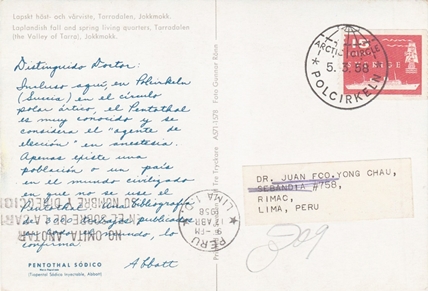 Lapskt höst- och vårviste, Tarradalen, Jokkmokk.
Laplandish fall and spring living quarters, Tarradalen
(the Valley of Tarra), Jokkmokk.
Distinguido Doctor:
Incluso aquí, en Polcirkeln
(Suecia) en el círculo
polar ártico, el Pentothal
es muy conocido y se
considera el "agente de
elección" en anestesia.
Apenas existe una
población o un país
en el mundo civilizado
en que no se use el
Pentothal
publicados
el mundo, lo
confirma.
Abbott
PENTOTHAL SÓDICO
(Tiopental Sódico Inyectable, Abbott)
Foto Gunnar Rönn
A571/578
ARCTIC CIRCLE
5.3.58
POLCIRKELN
15
SVERIGE
DR. JUAN FCO. YONG CHAU,
#758,
RIMAC,
LIMA, PERU
LIMA
ABR
1958
PERU
NO OMITA ANOTAR
EN EL SOBRE DE LA CARTA
SU NOMBRE Y DIRECCION